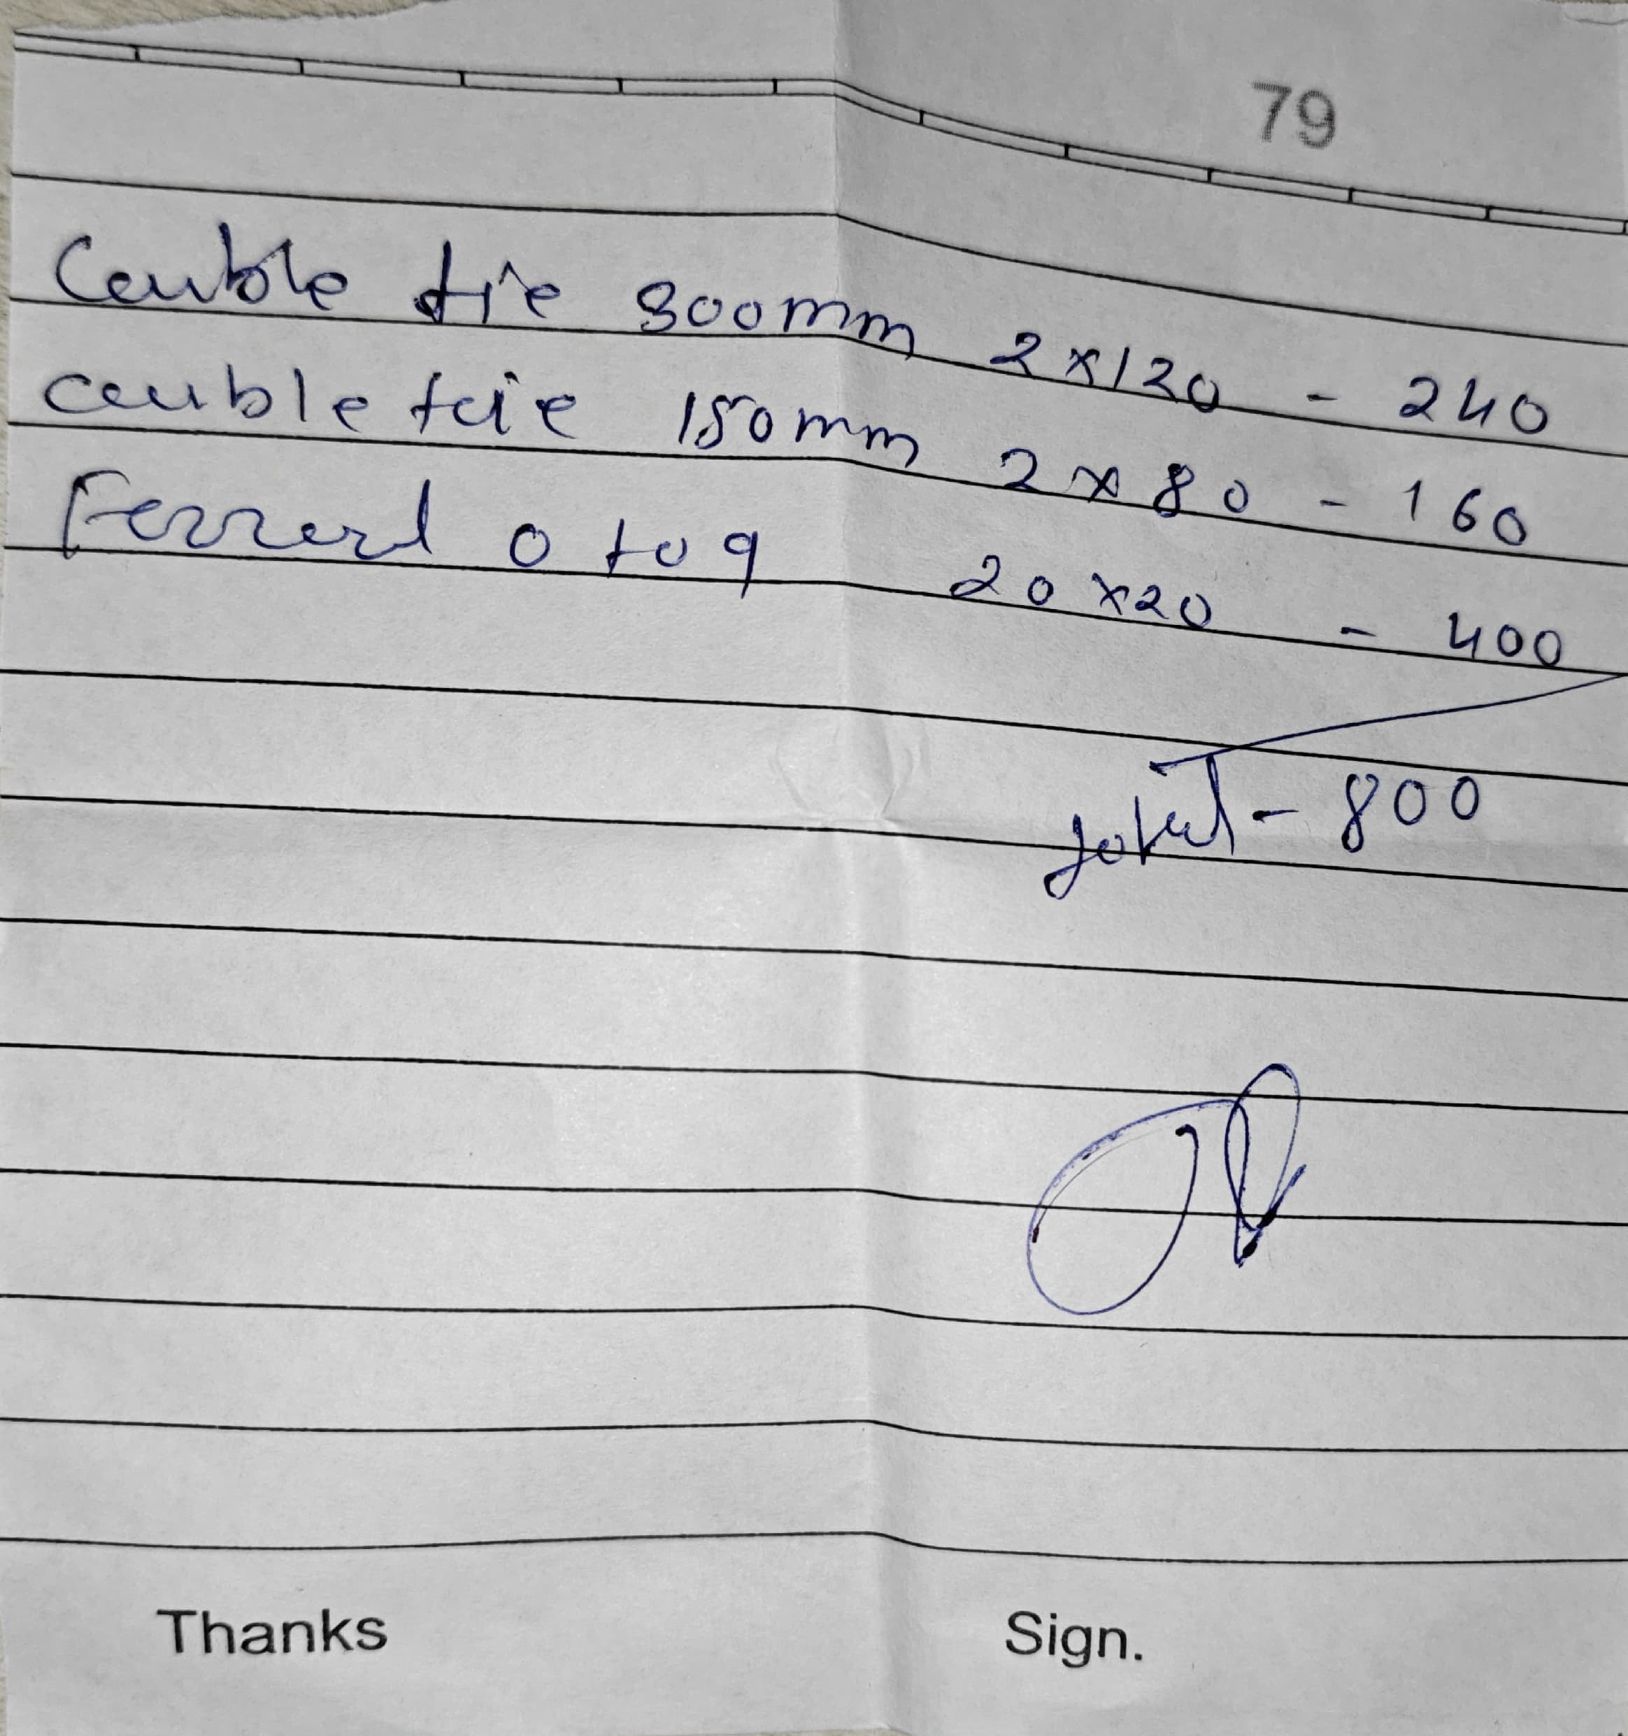 79
Cauble tie 300mm 2x120 - 240
cauble taie 150mm 2x80 - 160
Ferrerl 0 to 9 20x20 - 400
total - 800
Thanks Sign.